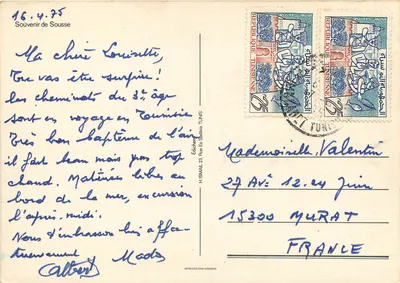 16.4.75
Souvenir de Sousse
Ma chère Louisette,
Tu vas être surprise!
les cheminots du 3e âge
sont en voyage en Tunisie
Très bon baptême de l'air
il fait beau mais pas trop
chaud. Matinées libres au
bord de la mer, excursion
l'après-midi.
Nous t'embrassons bien affec-
tueusement
Mado
Albert
REPUBLIQUE TUNISIENNE
REPUBLIQUE TUNISIENNE
25
25
TUNI
Mademoiselle Valentin
27 Ave 12.24 Juin
15300 MURAT
FRANCE